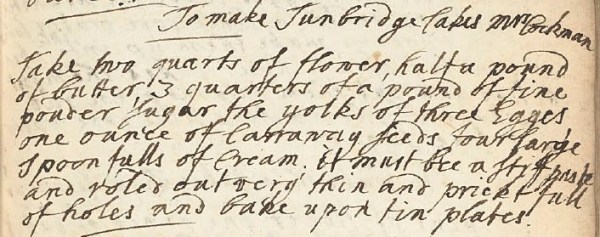 To make Tunbridge Cakes Mrs Cockman
Take two quarts of flower, half a pound
of butter, 3 quarters of a pound of fine
pouder sugar the yolks of three Eggs
one ounce of Carraway seeds four large
Spoonfulls of Cream. it must bee a stif paste
and roled out very thin and prickt full
of holes and bake upon tin plates.